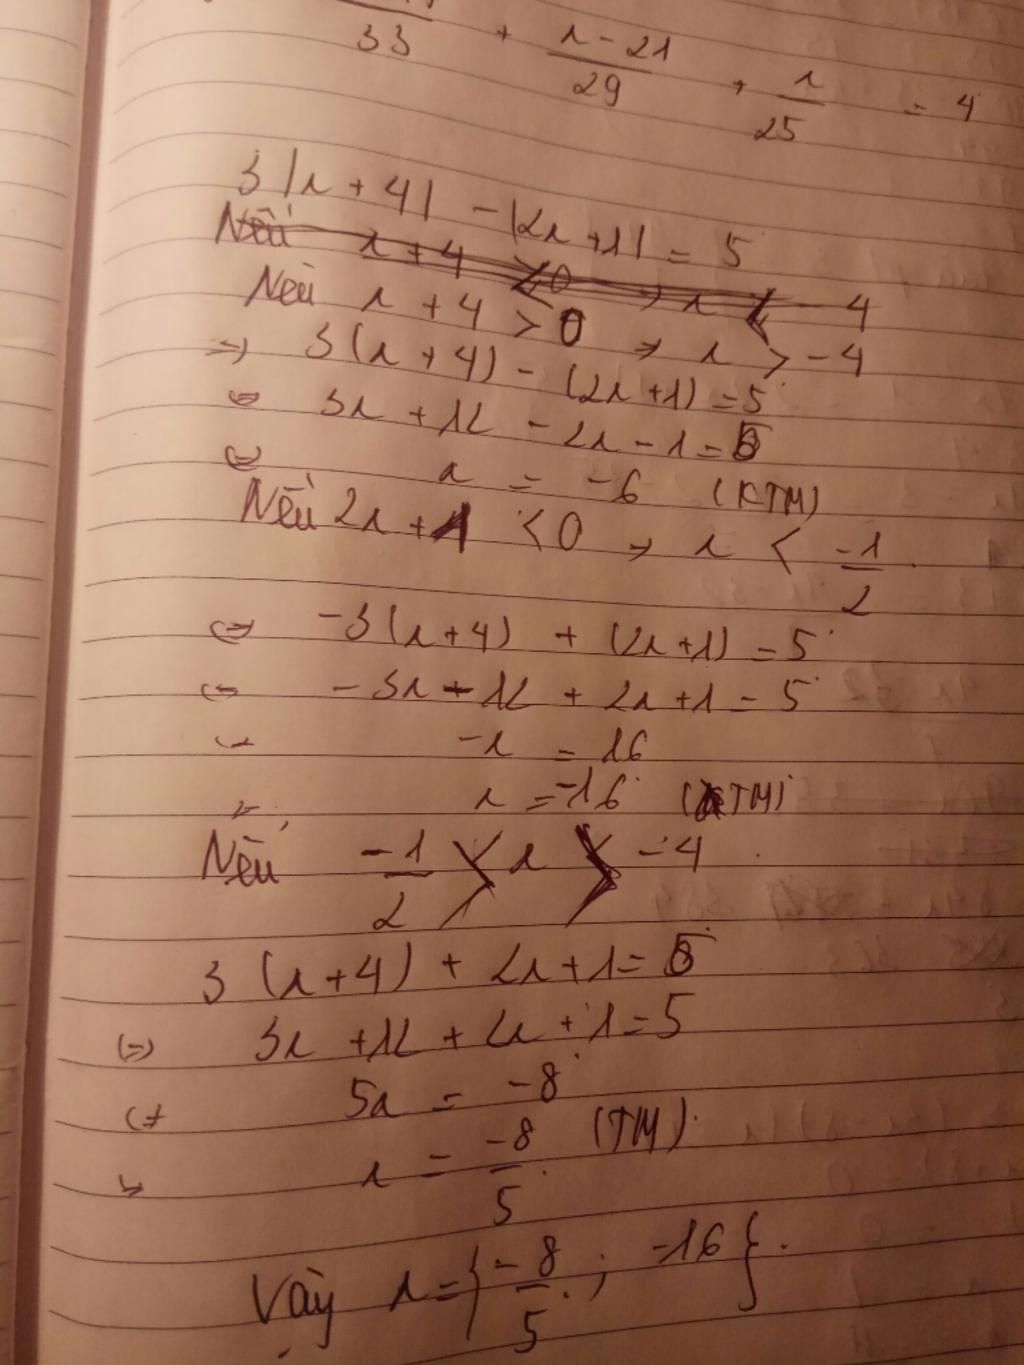 33 + x - 21 / 29 + x / 25 = 4
3|x + 4| - |2x + 1| = 5
Nếu x + 4 > 0 → x > -4
=> 3(x + 4) - (2x + 1) = 5
<=> 3x + 12 - 2x - 1 = 5
<=> x = -6 (KTM)
Nếu 2x + 1 < 0 → x < -1/2
<=> -3(x + 4) + (2x + 1) = 5
<=> -3x - 12 + 2x + 1 = 5
-x = 16
x = -16 (TM)
Nếu -1/2 > x > -4
3(x + 4) + 2x + 1 = 5
<=> 3x + 12 + 2x + 1 = 5
5x = -8
x = -8/5 (TM).
Vậy x = {-8/5 ; -16}.